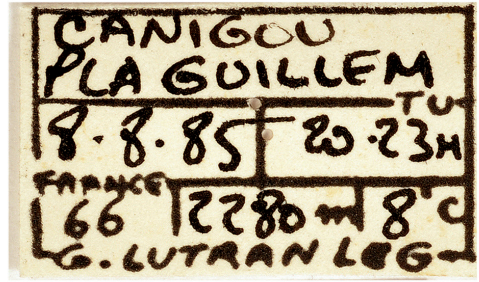 CANIGOU
PLA GUILLEM
TU
8.8.85 20.23H
FRANCE
66 2280 m 8°C
G. LUTRAN LEG